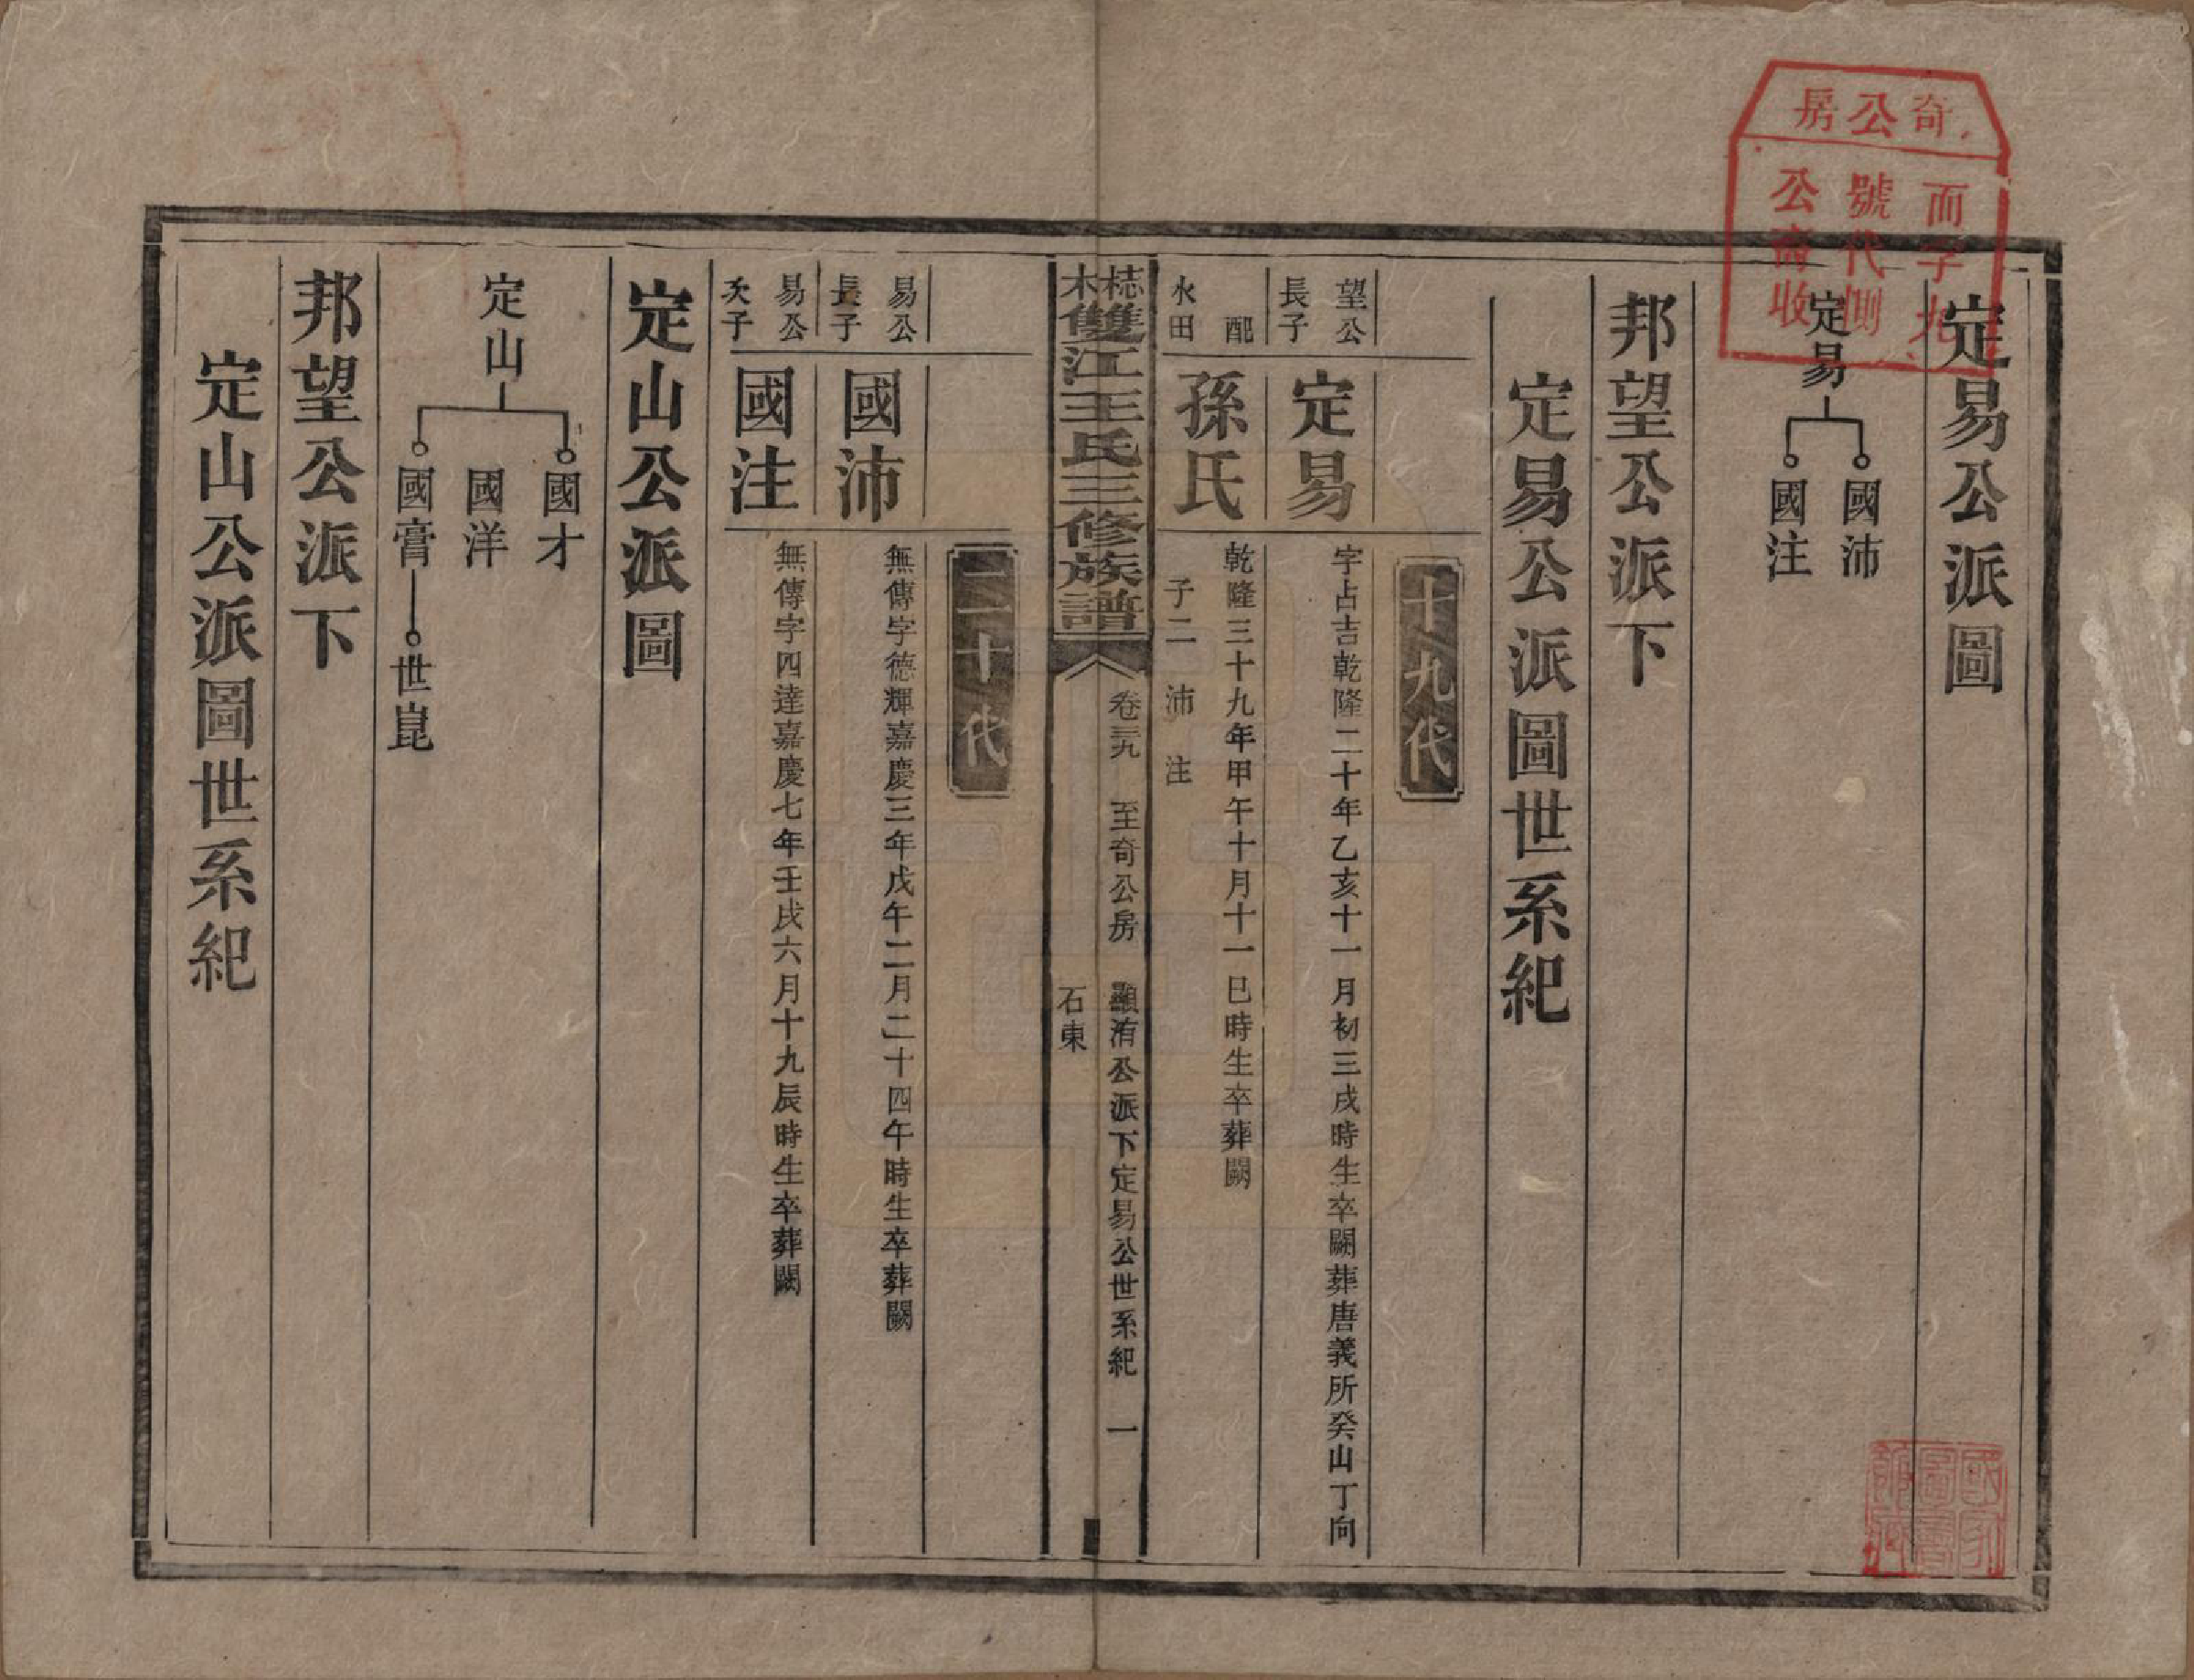 定易公派圖
定易
國沛
國注
邦望公派下
定易公派圖世系紀
十九代
望公長子
定易
字占吉乾隆二十年乙亥十一月初三戌時生卒闕葬唐義所癸山丁向
配水田
孫氏
乾隆三十九年甲午十月十一巳時生卒葬闕
子二 沛 注
梽木雙江王氏三修族譜
卷三九 至奇公房 顯洧公派下定易公世系紀 一
石東
二十代
易公長子
國沛
無傳字德輝嘉慶三年戊午二月二十四午時生卒葬闕
易公次子
國注
無傳字四達嘉慶七年壬戌六月十九辰時生卒葬闕
定山公派圖
定山
國才
國洋
國膏
世崑
邦望公派下
定山公派圖世系紀
奇公房
而字九
號代側
公齋收
國家
圖書
館藏